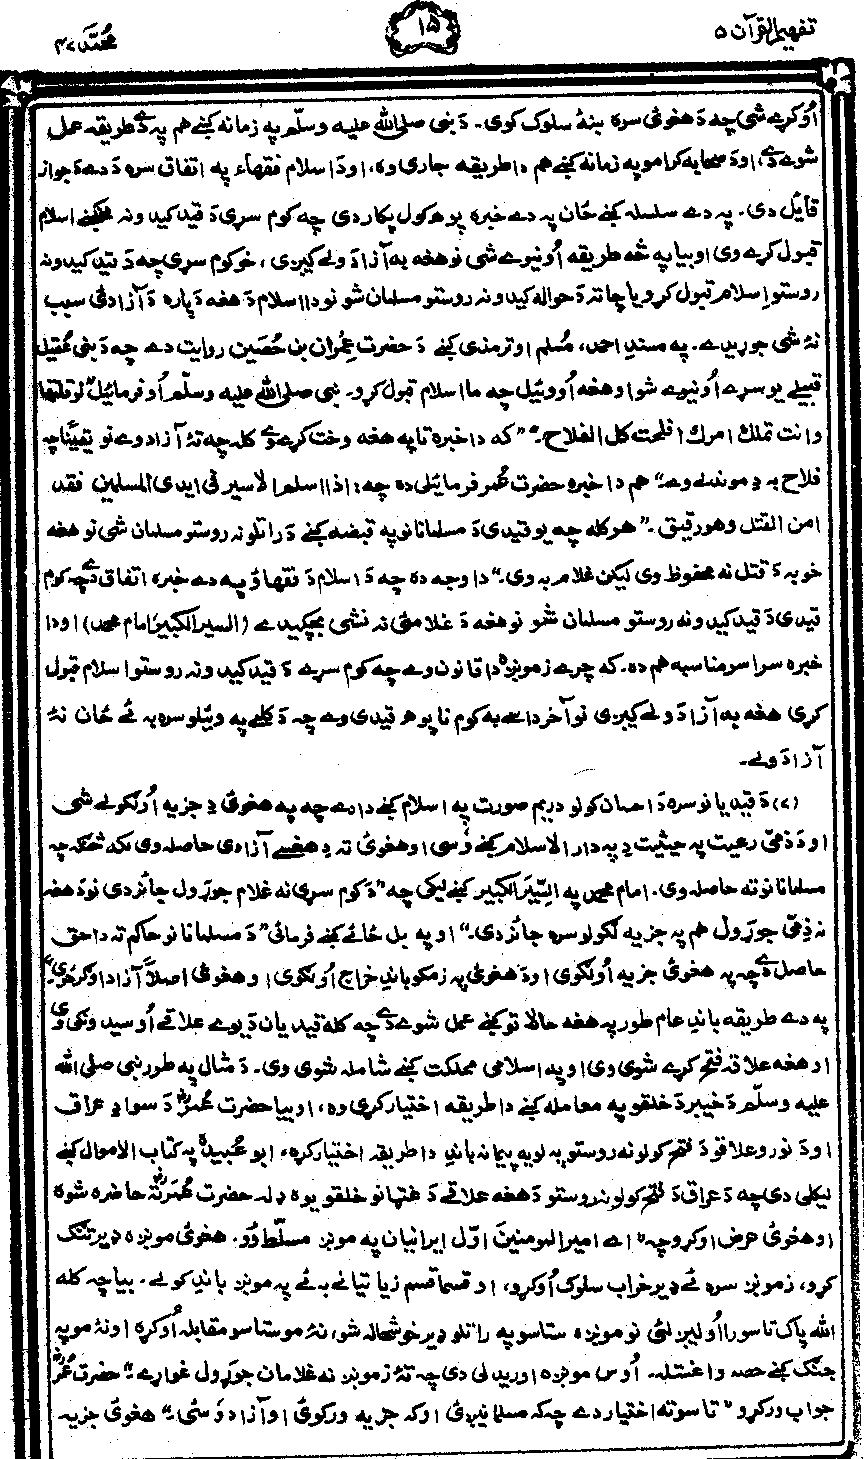 تفهیم القرآن ۵
۱۵
مُحَمَّد ۴۷
اُوکړے شی چه دَ هغوئ سره ښهٔ سلوک کوی۔ دَ نبی صلی الله علیه وسلّم په زمانه کښے هم په دے طریقه عمل
شوے دے، او دَ صحابه کرامو په زمانه کښے هم دا طریقه جاری وه، او دَ اسلام فقهاء په اتفاق سره دَ دے دَ جواز
قائل دی۔ په دے سلسله کښے ځان په دے خبره پوهول پکار دی چه کوم سړی دَ قید کیدو نه مخکښے اسلام
قبول کړے وی او بیا په څه طریقه اُونیوے شی نو هغه به آزادولے کیږی، خو کوم سړی چه دَ قید کیدو نه
روستو اسلام قبول کړو یا چاته دَ حواله کیدو نه روستو مسلمان شو نو دا اسلام دَ هغه دَ پاره دَ آزادئ سبب
نهٔ شی جوړیدے۔ په مسند احمد، مُسلم او ترمذی کښے دَ حضرت عِمُران بن حُصَین روایت دے چه دَ بنی عُقیل
قبیلے یو سړے اُونیوے شو او هغه اُووئیل چه ما اسلام قبول کړو۔ نبی صلی الله علیه وسلّم اُوفرمائیل "لو قلتها
وانت تملك امرك افلحت كل الفلاح۔" "که دا خبره تا په هغه وخت کړے وے کله چه تهٔ آزاد وے نو یقیناً چه
فلاح به دِ موندلے وه۔" هم دا خبره حضرت عُمر فرمائیلی ده چه: اذا اسلم الاسیر فی ایدی المسلمین فقد
امن القتل وهو رقیق۔" هر کله چه یو قیدی دَ مسلمانانو په قبضه کښے دَ راتلو نه روستو مسلمان شی نو هغه
خو به دَ قتل نه محفوظ وی لیکن غلام به وی۔" دا وجه ده چه دَ اسلام دَ فقهاؤ په دے خبره اتفاق دے چه کوم
قیدی دَ قید کیدو نه روستو مسلمان شو نو هغه دَ غلامئ نه نشی بچ کیدے (السیر الکبیر امام محمد) او دا
خبره سراسر مناسبه هم ده۔ که چرے زمونږه دا قانون وے چه کوم سړے دَ قید کیدو نه روستو اسلام قبول
کړی هغه به آزادولے کیږی نو آخر داسے به کوم ناپوهه قیدی وے چه دَ کلمے په وئیلو سره به ئے ځان نهٔ
آزادولے۔
(۷) دَ قیدیانو سره دَ احسان کولو دریم صورت په اسلام کښے دا دے چه په هغوئ دِ جزیه اُولګولے شی
او دَ ذمّی رعیت په حیثیت دِ په دار الاسلام کښے وُسی او هغوئ ته دِ هغسے آزادی حاصله وی لکه څنګه چه
مسلمانانو ته حاصله وی۔ امام محمد په السِّیَر الکبیر کښے لیکی چه "دَ کوم سړی نه غلام جوړول جائز دی نو دَ هغه
نه ذِمّی جوړول هم په جزیه لګولو سره جائز دی۔" او په بل ځائے کښے فرمائی "دَ مسلمانانو حاکم ته دا حق
حاصل دے چه په هغوئ جزیه اُولګوی او دَ هغوئ په زمکو باندِ خراج اُولګوی او هغوئ اصلاً آزاد اوګرځوی۔"
په دے طریقه باندِ عام طور په هغه حالاتو کښے عمل شوے دے چه کله قیدیان دَ یوے علاقے اُوسیدونکی وی
او هغه علاقه فتح کړے شوی وی او په اسلامی مملکت کښے شامله شوی وی۔ دَ مثال په طور نبی صلی الله
علیه وسلّم دَ خیبر دَ خلقو په معامله کښے دا طریقه اختیار کړی وه، او بیا حضرت عُمَرؓ دَ سوادِ عراق
او دَ نورو علاقو دَ فتح کولو نه روستو په لویه پیمانه باندِ دا طریقه اختیار کړه، ابو عُبیدؒ په کتاب الاموال کښے
لیکلی دی چه دَ عراق دَ فتح کولو نه روستو دَ هغه علاقے دَ غټانو خلقو یوه ډله حضرت عُمَرؓ ته حاضره شوه
او هغوئ عرض اوکړو چه "اے امیر المومنین اوّل ایرانیان په مونږ مسلّط وُو۔ هغوئ مونږه ډیر تنګ
کړو، زمونږ سره ئے ډیر خراب سلوک اُوکړو، او قسما قسم زیاتیانے به ئے په مونږ باندِ کولے۔ بیا چه کله
الله پاک تاسو را اُولیږلئ نو مونږه ستاسو په راتلو ډیر خوشحاله شو، نهٔ مو ستاسو مقابله اُوکړه او نهٔ مو په
جنګ کښے حصه واغستله۔ اُوس مونږه اوریدلی دی چه تهٔ زمونږ نه غلامان جوړول غواړے۔" حضرت عُمَرؓ
جواب ورکړو "تاسو ته اختیار دے چه که مسلمانیږئ او که جزیه ورکوئ او آزاد وُسئ۔" هغوئ جزیه